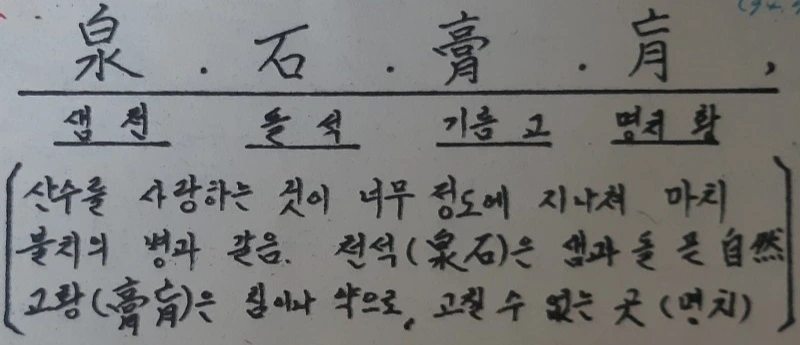 泉 . 石 . 膏 . 肓,
샘 천 돌 석 기름 고 명치 황
산수를 사랑하는 것이 너무 정도에 지나쳐 마치
불치의 병과 같음. 천석(泉石)은 샘과 돌 곧 自然
고황(膏肓)은 침이나 약으로, 고칠 수 없는 곳 (명치)